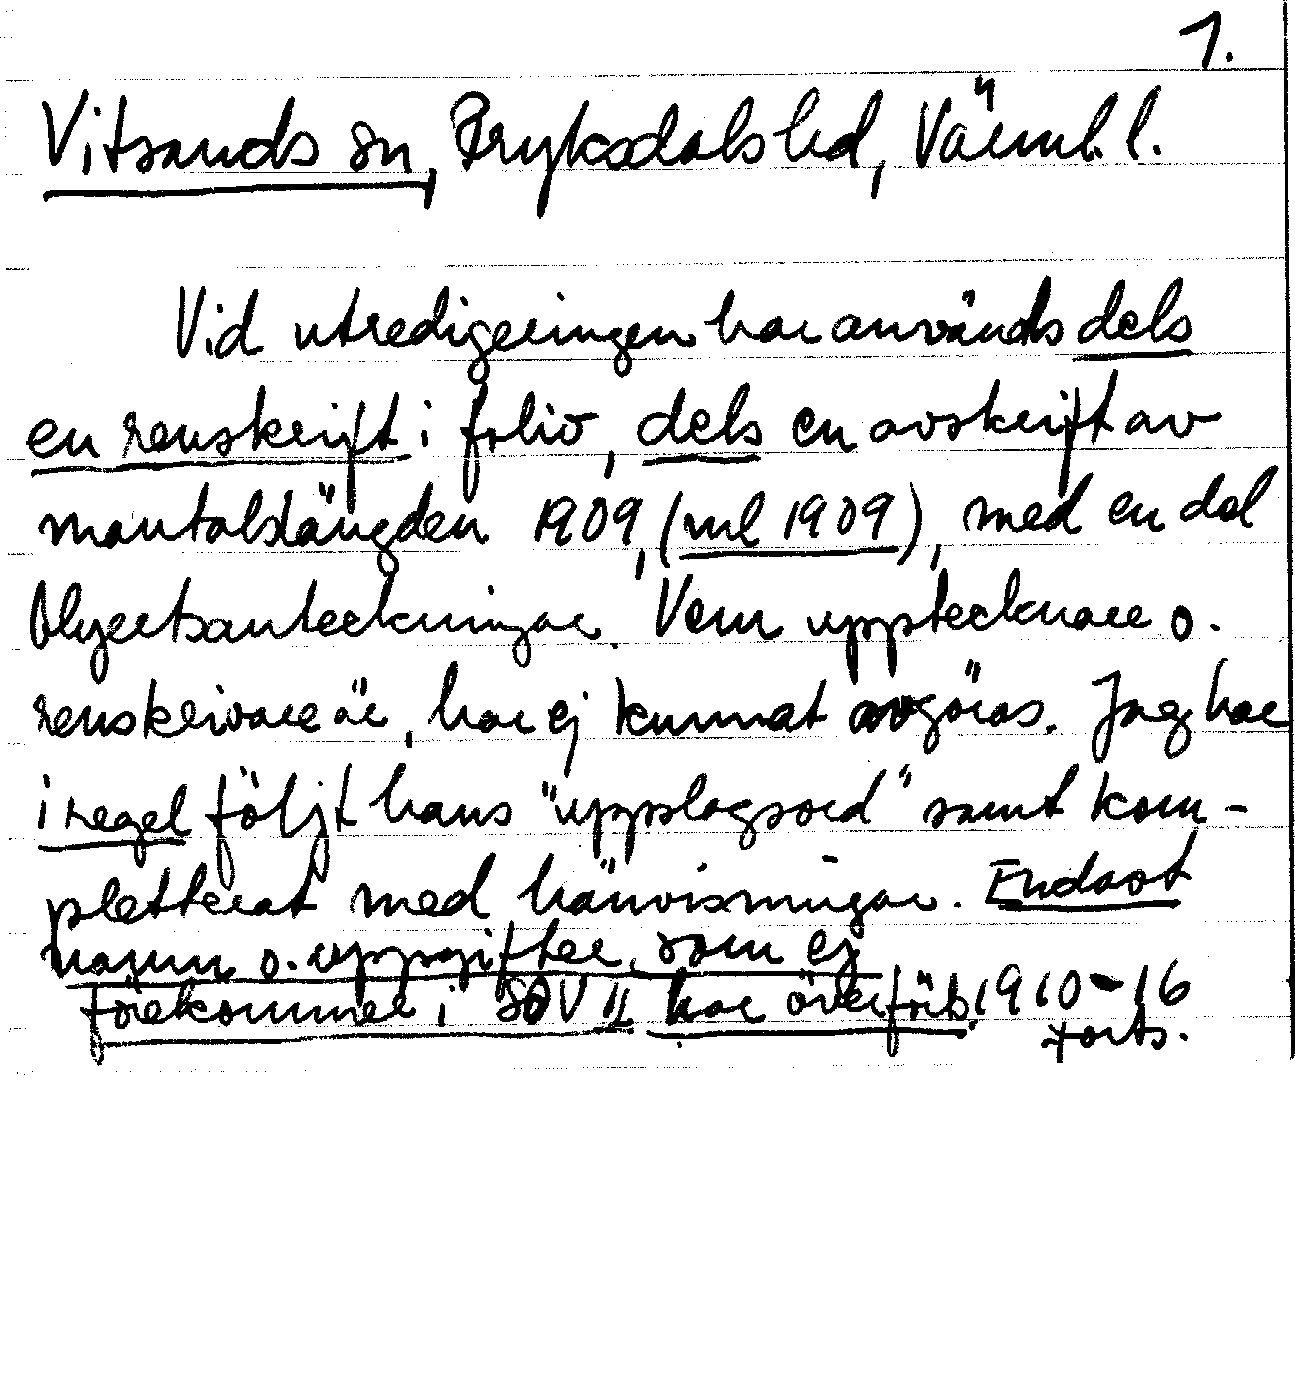 1.
Vitsands sn, Fryksdals hd, Värml. l.
Vid utredigeringen har använts dels
en renskrift i folio, dels en avskrift av
mantalslängden 1909, (ml 1909), med en del
blyertsanteckningar. Vem upptecknare o.
renskrivare är, har ej kunnat avgöras. Jag har
i regel följt hans "uppslagsord" samt kom-
pletterat med hänvisningar. Endast
namn o. uppgifter, som ej
förekommer i SOV II har överförts. 1910-16
Forts.